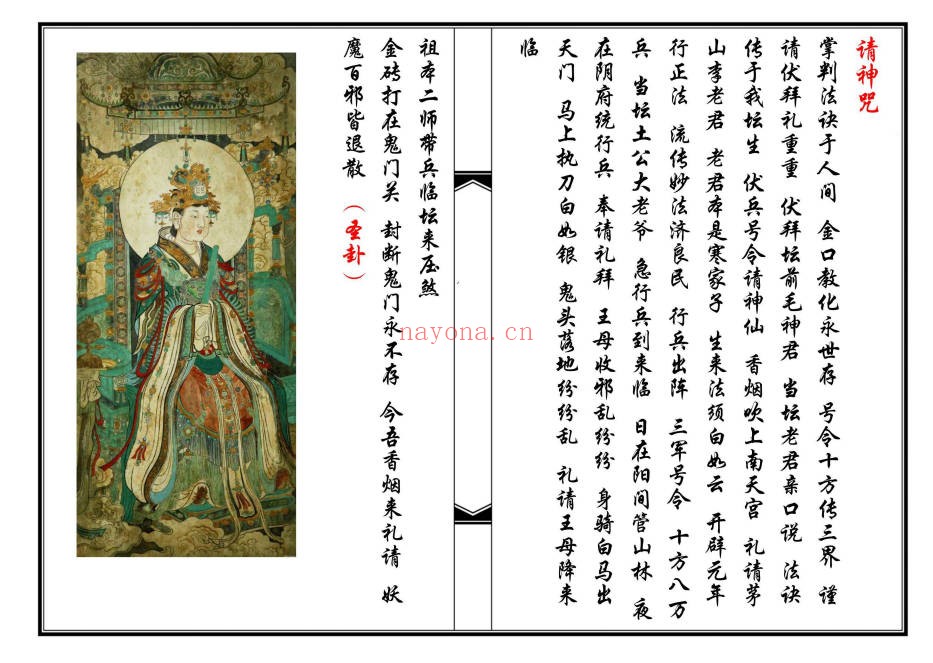 请神咒
掌判法诀于人间 金口教化永世存 号令十方传三界 谨
请伏拜礼重重 伏拜坛前毛神君 当坛老君亲口说 法诀
传于我坛生 伏兵号令请神仙 香烟吹上南天宫 礼请茅
山李老君 老君本是寒家子 生来法须白如云 开辟元年
行正法 流传妙法济良民 行兵出阵 三军号令 十方八万
兵 当坛土公大老爷 急行兵到来临 日在阳间管山林 夜
在阴府统行兵 奉请礼拜 王母收邪乱纷纷 身骑白马出
天门 马上执刀白如银 鬼头落地纷纷乱 礼请王母降来
临
祖本二师带兵临坛来压煞
金砖打在鬼门关 封断鬼门永不存 今吾香烟来礼请 妖
魔百邪皆退散 （圣卦）
nayona.cn